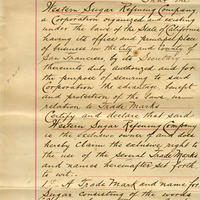 That the
Western Sugar Refining Company
a Corporation organized and existing
under the laws of the State of California
having its office and principal place
of business in the City and County of
San Francisco, by its Secretary
thereunto duly authorized and for
the purpose of securing to said
Corporation the advantage, benefit
and protection of the laws in
relation to Trade Marks
Certify and declare that said
Western Sugar Refining Company
is the exclusive owner of and does
hereby claim the exclusive right to
the use of the several Trade Marks
and names hereinafter set forth
to wit:-
1st A Trade Mark and name for
Sugar consisting of the words